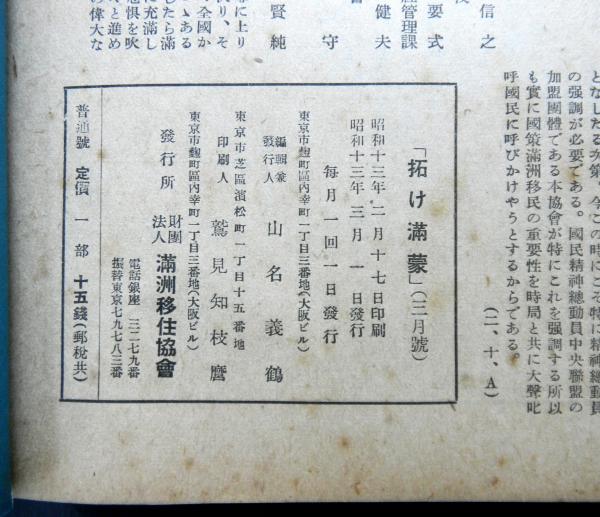 となしたる次第。今この時にこそ特に精神總動員
の强調が必要である。國民精神總動員中央聯盟の
加盟團體である本協會が特にこれを强調する所以
も實に國策滿洲移民の重要性を時局と共に大聲叱
呼國民に呼びかけやうとするからである。
(二、十、A)
信之
要式
管理課
健夫
守
賢純
に上り
り、そ
全國か
ゝある
したら滿
に充滿し
惧を吹
と進め
の偉大な
「拓け滿蒙」(三月號)
昭和十三年二月十七日印刷
昭和十三年三月一日發行
每月一回一日發行
東京市麹町區內幸町一丁目三番地(大阪ビル)
編輯兼
發行人 山名義鶴
東京市芝區濱松町一丁目十五番地
印刷人 鷲見知枝麿
東京市麹町區內幸町一丁目三番地(大阪ビル)
發行所 財團法人 滿洲移住協會
電話銀座 三二七九番
振替東京七九七八三番
普通號 定價 一部 十五錢(郵稅共)